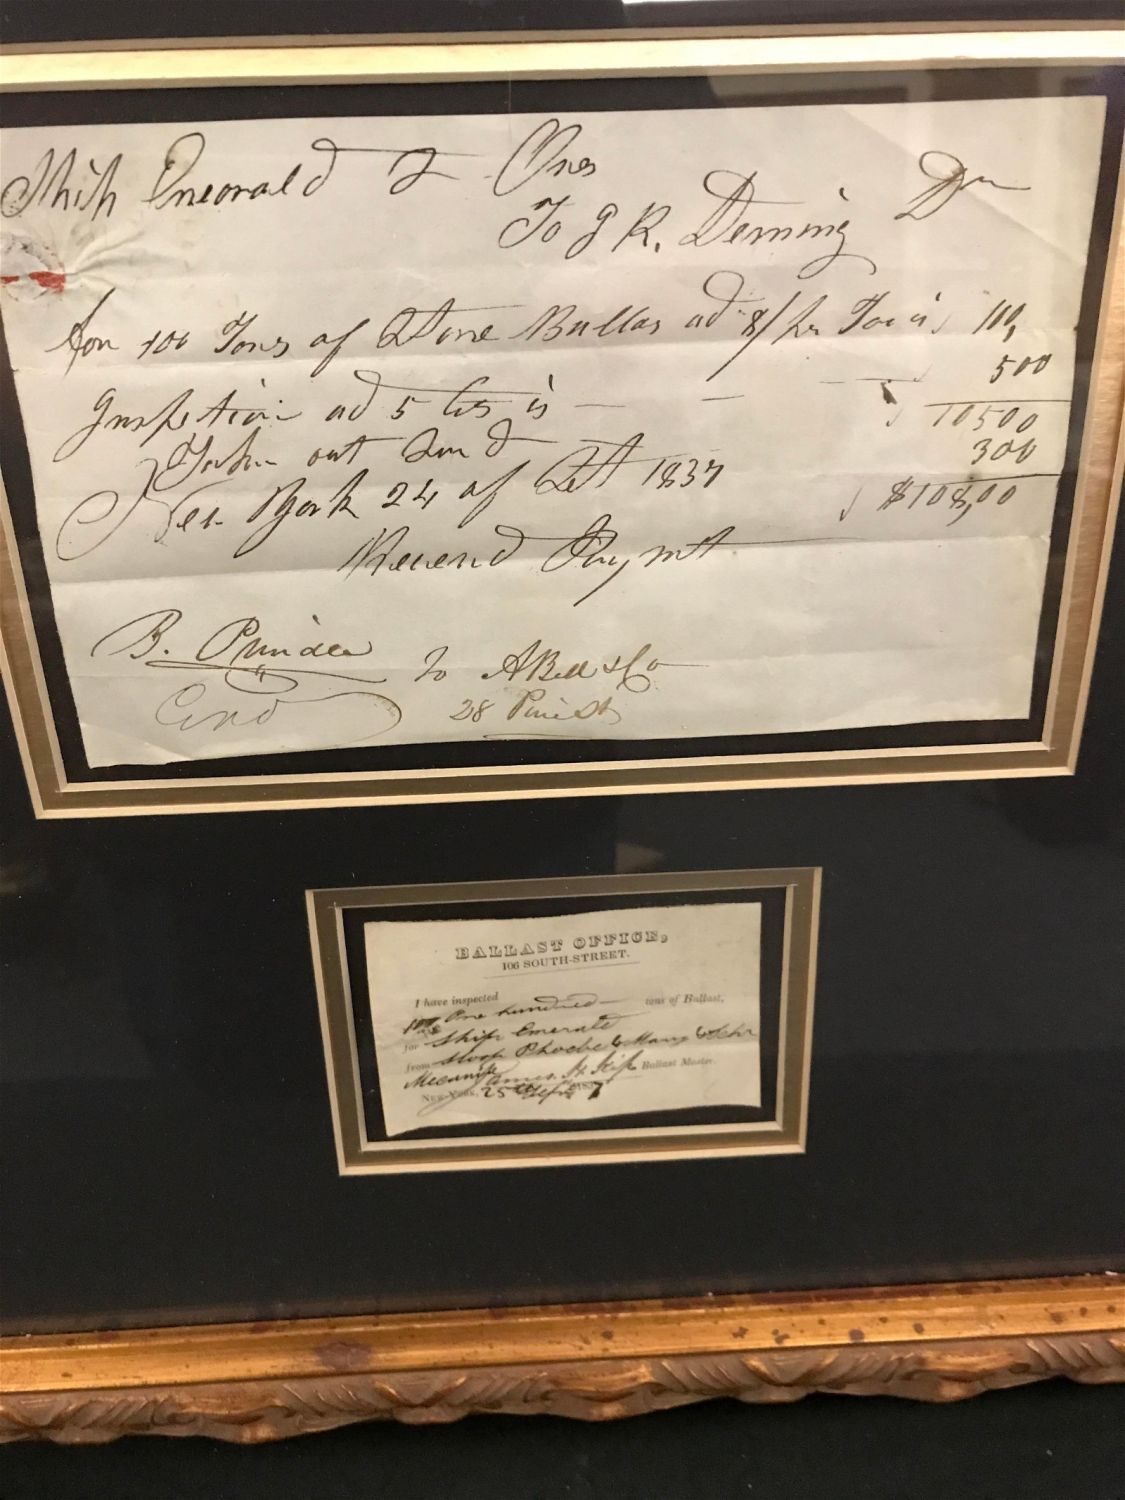 Ship Emerald & Ons
To J R. Deming Dr
for 100 Tons of Stone Ballas ad 8/ pr Ton is 100,
Inspetion ad 5 Cts is — — 500
10500
out and 300
New York 24 of 1837 $108,00
Receved Paymt
B. to A Bell & Co
28 Pine St
BALLAST OFFICE,
106 SOUTH-STREET.
I have inspected
100 One hundred tons of Ballast,
for Ship Emerald
from Sloop Phoebe & Mary & Schr
Mecanik James H Kip Ballast Master.
NEW-YORK, 25th Sept 1837